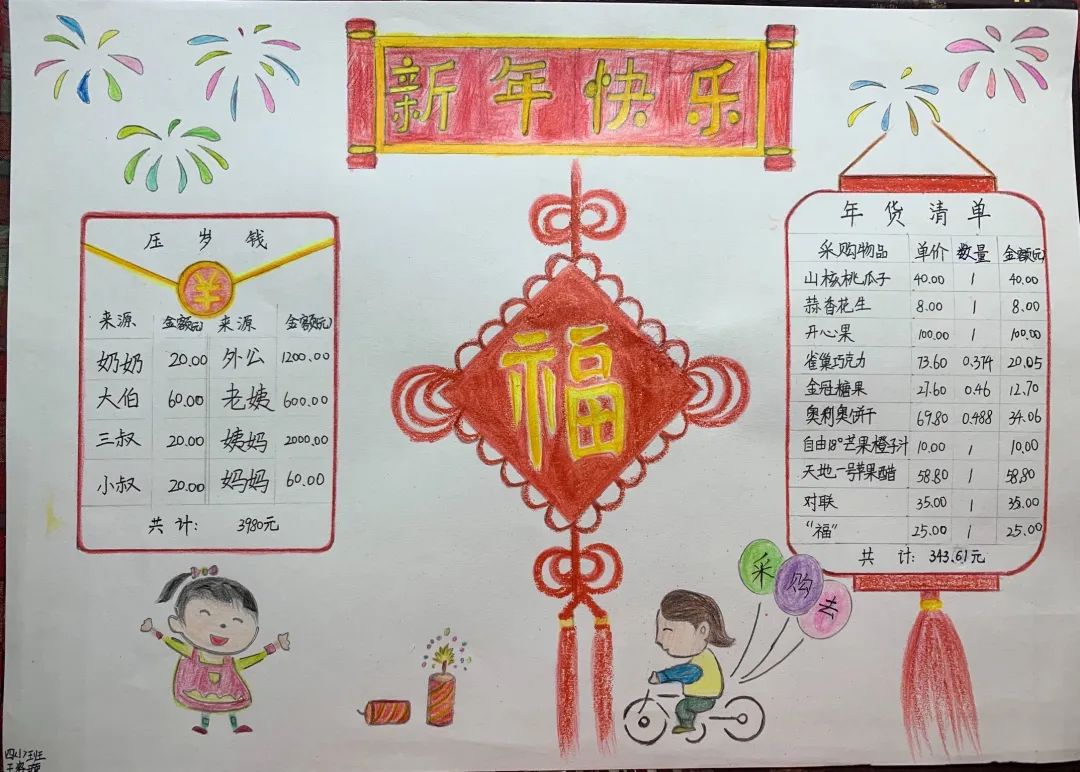 新年快乐
压岁钱
¥
来源 金额(元) 来源 金额(元)
奶奶 20.00 外公 1200.00
大伯 60.00 老姨 600.00
三叔 20.00 姨妈 2000.00
小叔 20.00 妈妈 60.00
共计: 3980元
福
年货清单
采购物品 单价 数量 金额(元)
山核桃瓜子 40.00 1 40.00
蒜香花生 8.00 1 8.00
开心果 100.00 1 100.00
雀巢巧克力 73.60 0.374 20.05
金冠糖果 27.60 0.46 12.70
奥利奥饼干 69.80 0.488 34.06
自由18°芒果橙子汁 10.00 1 10.00
天地一号苹果醋 58.80 1 58.80
对联 35.00 1 35.00
“福” 25.00 1 25.00
共计: 343.61元
采购去